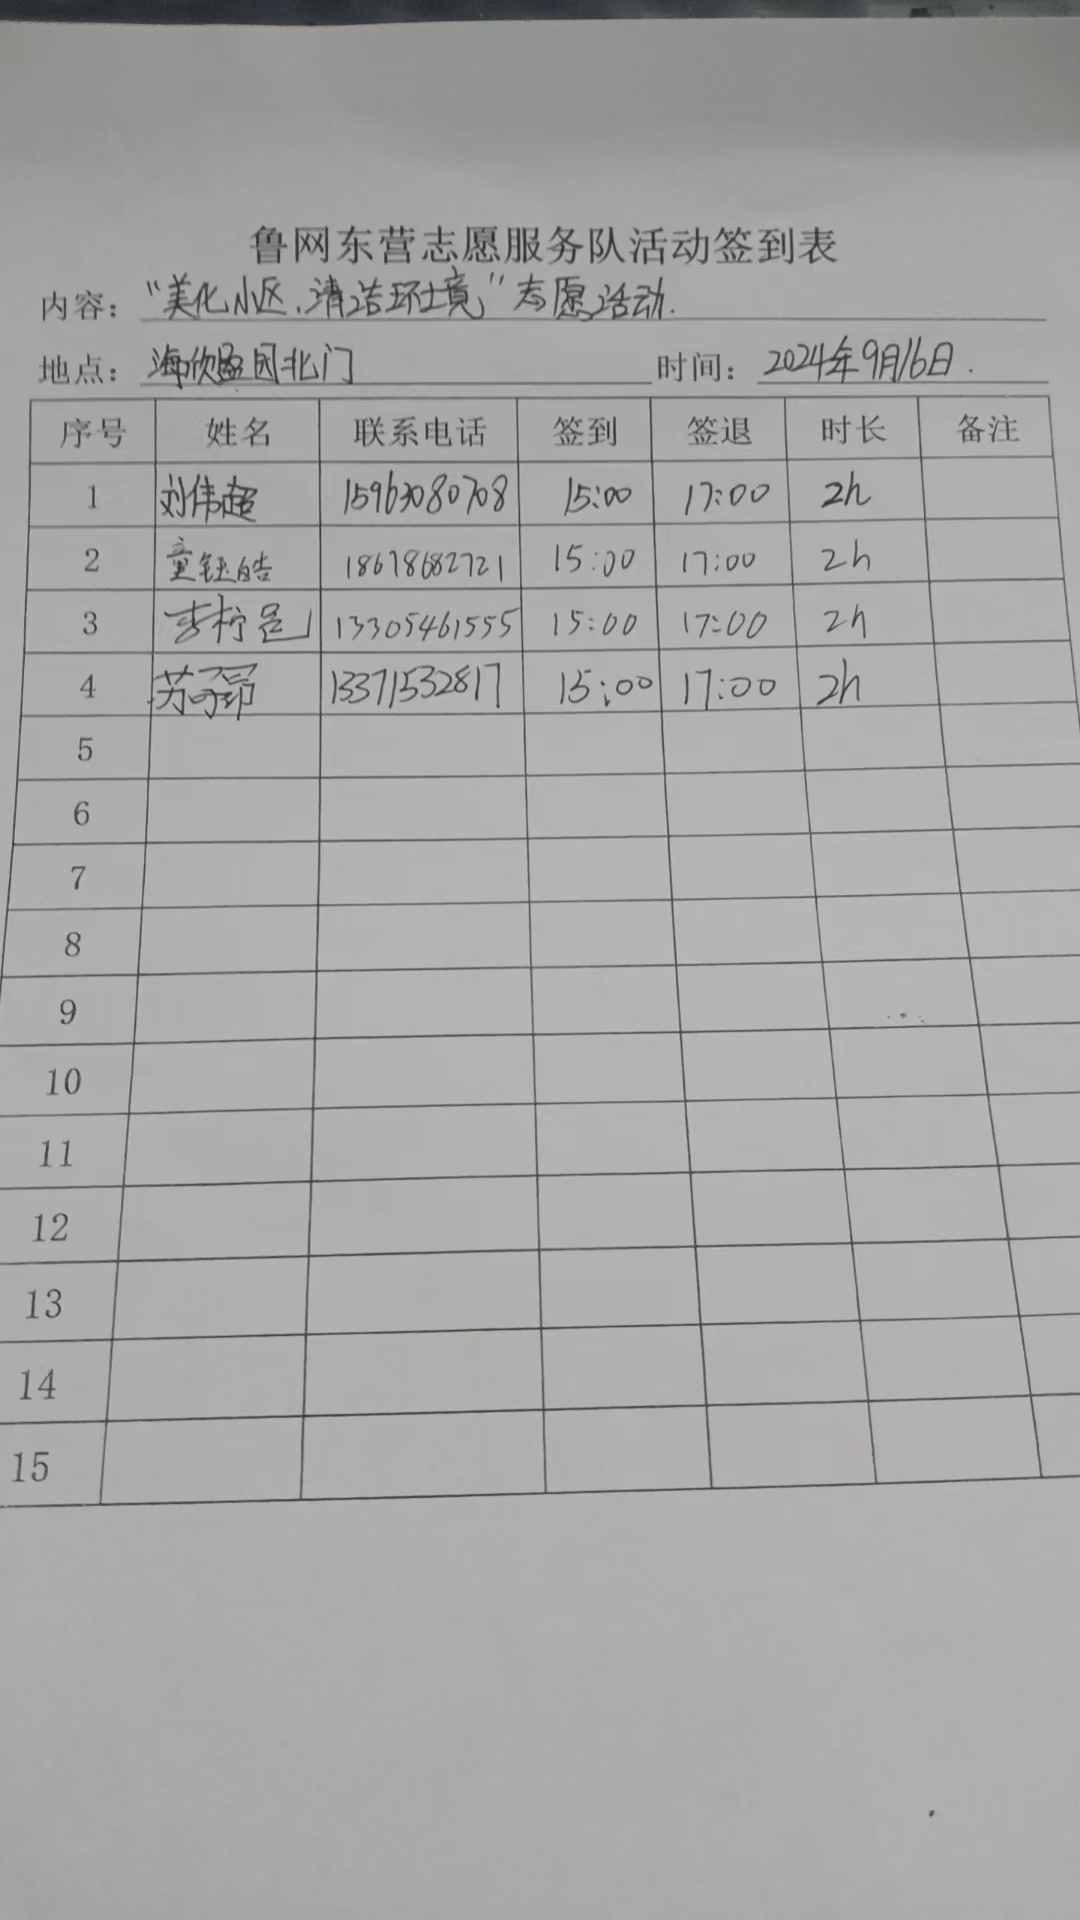 鲁网东营志愿服务队活动签到表
内容：“美化小区,清洁环境”志愿活动.
地点：海欣园北门 时间：2024年9月16日.
序号 姓名 联系电话 签到 签退 时长 备注
1 刘伟超 15963080708 15:00 17:00 2h
2 童钰皓 18678682721 15:00 17:00 2h
3 李柠邑 13305461555 15:00 17:00 2h
4 苏子昂 13371532817 15:00 17:00 2h
5
6
7
8
9
10
11
12
13
14
15